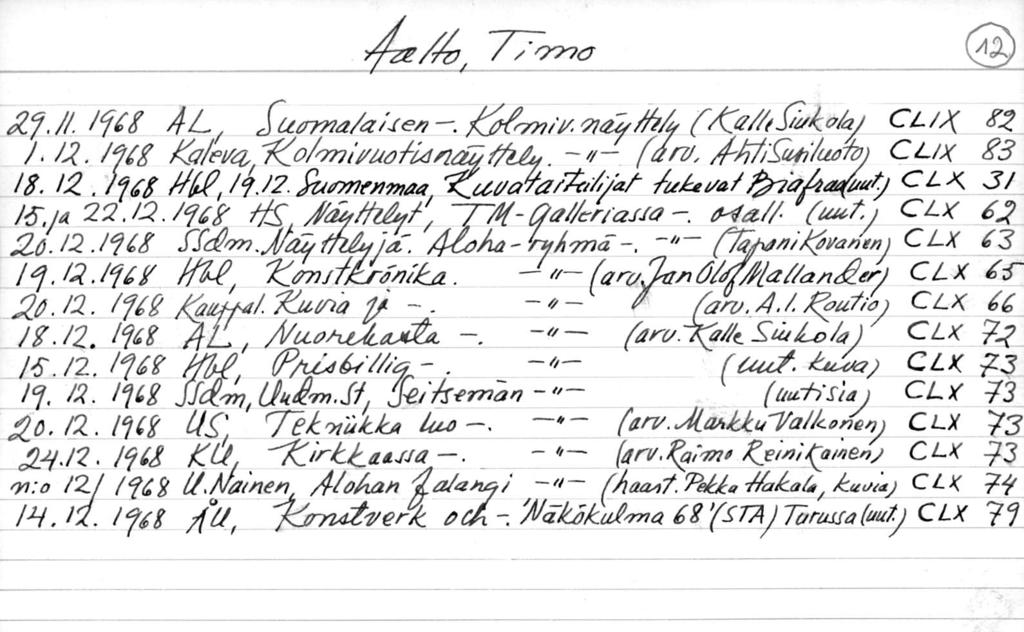 Aalto, Timo 12
29.11.1968 AL, Suomalaisen –. Kolmiv. näyttely (Kalle Siukola) CLIX 82
1.12.1968 Kaleva, Kolmivuotisnäyttely. –"– (arv. Ahti Susiluoto) CLIX 83
18.12.1968 Hbl, 19.12. Suomenmaa, Kuvataiteilijat tukevat Biafraa (uut.) CLX 31
15. ja 22.12.1968 HS, Näyttelyt, TM-Galleriassa –. osall. (uut.) CLX 62
20.12.1968 SSdm. Näyttelyjä. Aloha-ryhmä –. –"– (Tapani Kovanen) CLX 63
19.12.1968 Hbl, Konstkrönika. –"– (arv. Jan Olof Mallander) CLX 65
20.12.1968 Kauppal. Kuvia ja –. –"– (arv. A.I. Routio) CLX 66
18.12.1968 AL, Nuorekasta –. –"– (arv. Kalle Siukola) CLX 72
15.12.1968 Hbl, Prisbillig –. –"– (uut. kuva) CLX 73
19.12.1968 SSdm, Uudm.St, Seitsemän –"– (uutisia) CLX 73
20.12.1968 US, Tekniikka luo –. –"– (arv. Markku Valkonen) CLX 73
24.12.1968 KU, Kirkkaassa –. –"– (arv. Raimo Reinikainen) CLX 73
n:o 12/1968 U.Nainen, Alohan falangi –"– (haast. Pekka Hakala, kuvia) CLX 74
14.12.1968 ÅU, Konstverk och –. 'Näkökulma 68' (STA) Turussa (uut.) CLX 79